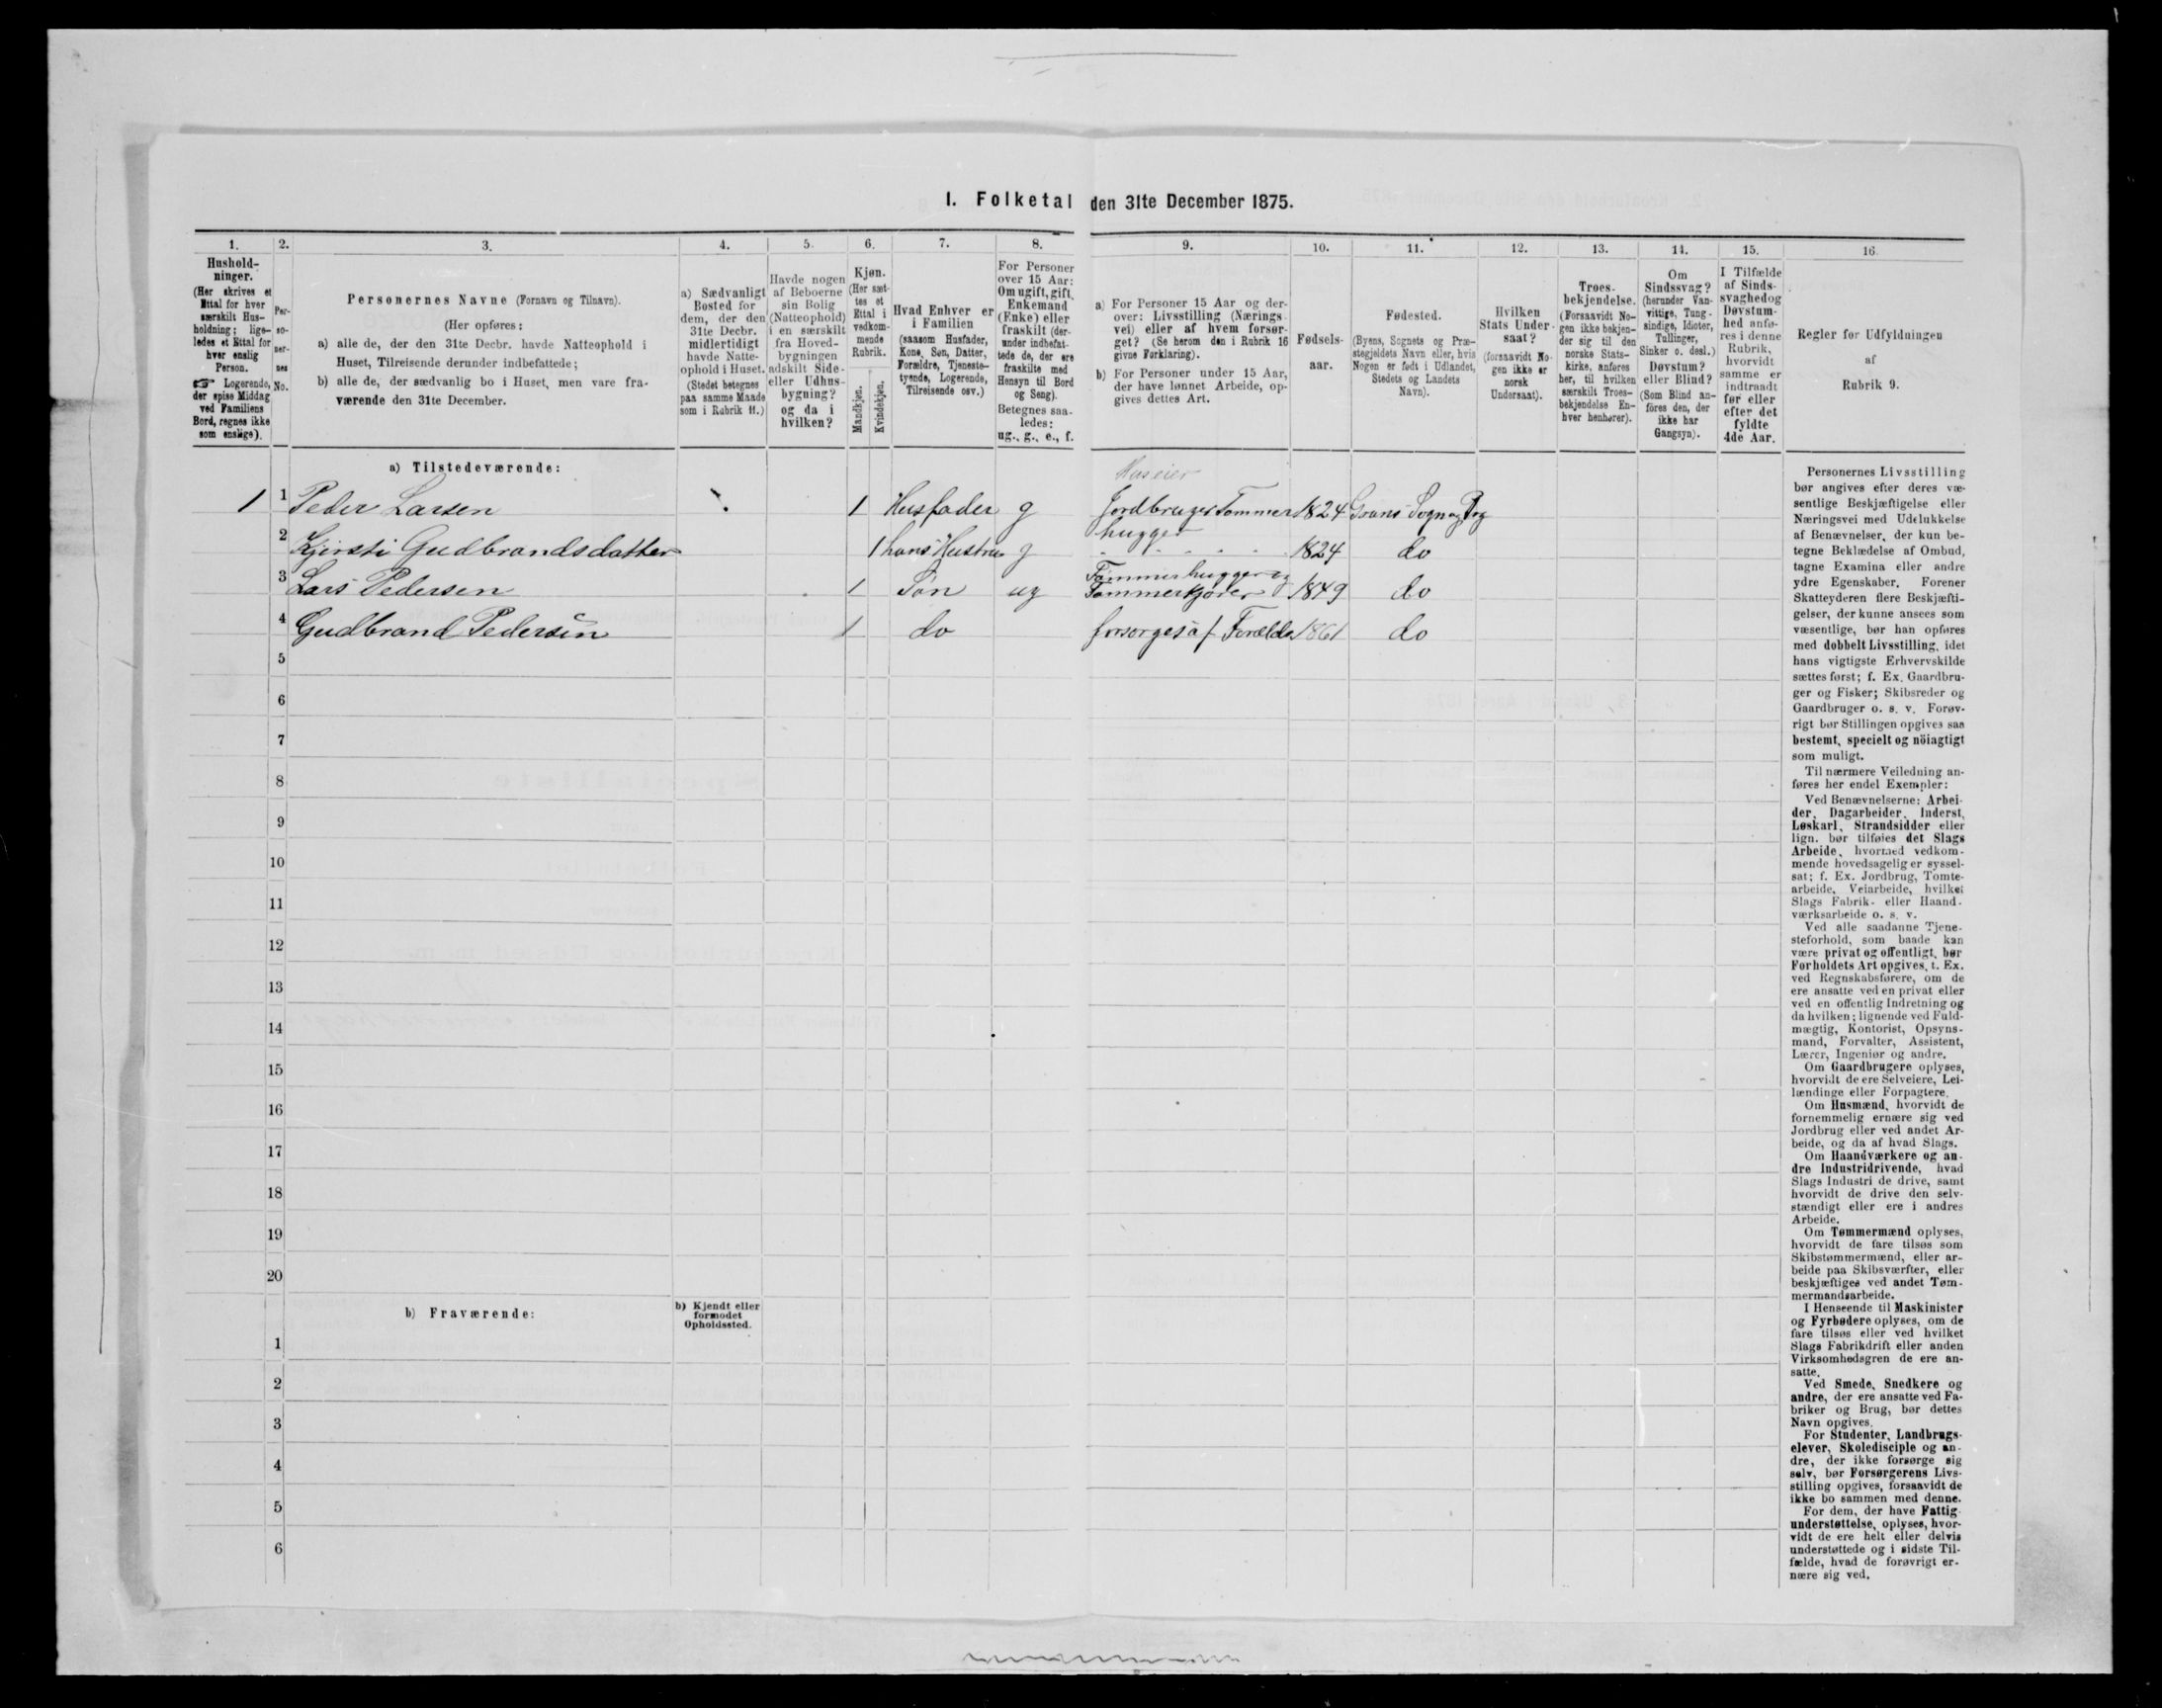 I. Folketal den 31te December 1875.
1.
2.
3.
4.
5.
6.
7.
8.
9.
10.
11.
12.
13.
14.
15.
16
Hushold-
ninger.
(Her skrives et
Ettal for hver
særskilt Hus-
holdning; lige-
ledes et Ettal for
hver enslig
Person.
☞ Logerende,
der spise Middag
ved Familiens
Bord, regnes ikke
som enslige).
Per-
so-
ner-
nes
No.
Personernes Navne (Fornavn og Tilnavn).
(Her opføres:
a) alle de, der den 31te Decbr. havde Natteophold i
Huset, Tilreisende derunder indbefattede;
b) alle de, der sædvanlig bo i Huset, men vare fra-
værende den 31te December.
a) Sædvanligt
Bosted for
dem, der den
31te Decbr.
midlertidigt
havde Natte-
ophold i Huset.
(Stedet betegnes
paa samme Maade
som i Rubrik 11.)
Havde nogen
af Beboerne
sin Bolig
(Natteophold)
i en særskilt
fra Hoved-
bygningen
adskilt Side-
eller Udhus-
bygning?
og da i
hvilken?
Kjøn.
(Her sæt-
tes et
Ettal i
vedkom-
mende
Rubrik.
Mandkjøn.
Kvindekjøn.
Hvad Enhver er
i Familien
(saasom Husfader,
Kone, Søn, Datter,
Forældre, Tjeneste-
tyende, Logerende,
Tilreisende osv.)
For Personer
over 15 Aar:
Om ugift, gift,
Enkemand
(Enke) eller
fraskilt (der-
under indbefat-
tede de, der ere
fraskilte med
Hensyn til Bord
og Seng).
Betegnes saa-
ledes:
ug., g., e., f.
a) For Personer 15 Aar og der-
over: Livsstilling (Nærings-
vei) eller af hvem forsør-
get? (Se herom den i Rubrik 16
givne Forklaring).
b) For Personer under 15 Aar,
der have lønnet Arbeide, op-
gives dettes Art.
Fødsels-
aar.
Fødested.
(Byens, Sognets og Præ-
stegjeldets Navn eller, hvis
Nogen er født i Udlandet,
Stedets og Landets
Navn).
Hvilken
Stats Under-
saat?
(forsaavidt No-
gen ikke er
norsk
Undersaat).
Troes-
bekjendelse.
(Forsaavidt No-
gen ikke bekjen-
der sig til den
norske Stats-
kirke, anføres
her, til hvilken
særskilt Troes-
bekjendelse En-
hver henhører).
Om
Sindssvag?
(herunder Van-
vittige, Tung-
sindige, Idioter,
Tullinger,
Sinker o. desl.)
Døvstum?
eller Blind?
(Som Blind an-
føres den, der
ikke har
Gangsyn).
I Tilfælde
af Sinds-
svaghed og
Døvstum-
hed anfø-
res i denne
Rubrik,
hvorvidt
samme er
indtraadt
før eller
efter det
fyldte
4de Aar.
Regler for Udfyldningen
af
Rubrik 9.
a) Tilstedeværende:
Huseier
1 1 Peder Larsen 1 Husfader g Jordbruger Tømmer 1824 Grans Sogn og Prg
hugger
2 Kjersti Gudbrandsdatter 1 hans Hustru g 1824 do
Tømmerhugger og
3 Lars Pedersen 1 Søn ug Tømmerkjører 1849 do
4 Gudbrand Pedersen 1 do forsorges af Forældr 1861 do
5
6
7
8
9
10
11
12
13
14
15
16
17
18
19
20
b) Fraværende:
b) Kjendt eller
formodet
Opholdssted.
1
2
3
4
5
6
Personernes Livsstilling
bør angives efter deres væ-
sentlige Beskjæftigelse eller
Næringsvei med Udelukkelse
af Benævnelser, der kun be-
tegne Beklædelse af Ombud,
tagne Examina eller andre
ydre Egenskaber. Forener
Skatteyderen flere Beskjæfti-
gelser, der kunne ansees som
væsentlige, bør han opføres
med dobbelt Livsstilling, idet
hans vigtigste Erhvervskilde
sættes først; f. Ex. Gaardbru-
ger og Fisker; Skibsreder og
Gaardbruger o. s. v. Forøv-
rigt bør Stillingen opgives saa
bestemt, specielt og nöiagtigt
som muligt.
Til nærmere Veiledning an-
føres her endel Exempler:
Ved Benævnelserne: Arbei-
der, Dagarbeider, Inderst,
Løskarl, Strandsidder eller
lign. bør tilføies det Slags
Arbeide, hvormed vedkom-
mende hovedsagelig er syssel-
sat; f. Ex. Jordbrug, Tomte-
arbeide, Veiarbeide, hvilket
Slags Fabrik- eller Haand-
værksarbeide o. s. v.
Ved alle saadanne Tjene-
steforhold, som baade kan
være privat og offentligt, bør
Forholdets Art opgives, t. Ex.
ved Regnskabsførere, om de
ere ansatte ved en privat eller
ved en offentlig Indretning og
da hvilken; lignende ved Fuld-
mægtig, Kontorist, Opsyns-
mand, Forvalter, Assistent,
Lærer, Ingeniør og andre.
Om Gaardbrugere oplyses,
hvorvidt de ere Selveiere, Lei-
lændinge eller Forpagtere.
Om Husmænd, hvorvidt de
fornemmelig ernære sig ved
Jordbrug eller ved andet Ar-
beide, og da af hvad Slags.
Om Haandværkere og an-
dre Industridrivende, hvad
Slags Industri de drive, samt
hvorvidt de drive den selv-
stændigt eller ere i andres
Arbeide.
Om Tømmermænd oplyses,
hvorvidt de fare tilsøs som
Skibstømmermænd, eller ar-
beide paa Skibsværfter, eller
beskjæftiges ved andet Tøm-
mermandsarbeide.
I Henseende til Maskinister
og Fyrbødere oplyses, om de
fare tilsøs eller ved hvilket
Slags Fabrikdrift eller anden
Virksomhedsgren de ere an-
satte.
Ved Smede, Snedkere og
andre, der ere ansatte ved Fa-
briker og Brug, bør dettes
Navn opgives.
For Studenter, Landbrugs-
elever, Skoledisciple og an-
dre, der ikke forsørge sig
selv, bør Forsørgerens Livs-
stilling opgives, forsaavidt de
ikke bo sammen med denne.
For dem, der have Fattig-
understøttelse, oplyses, hvor-
vidt de ere helt eller delvis
understøttede og i sidste Til-
fælde, hvad de forøvrigt er-
nære sig ved.